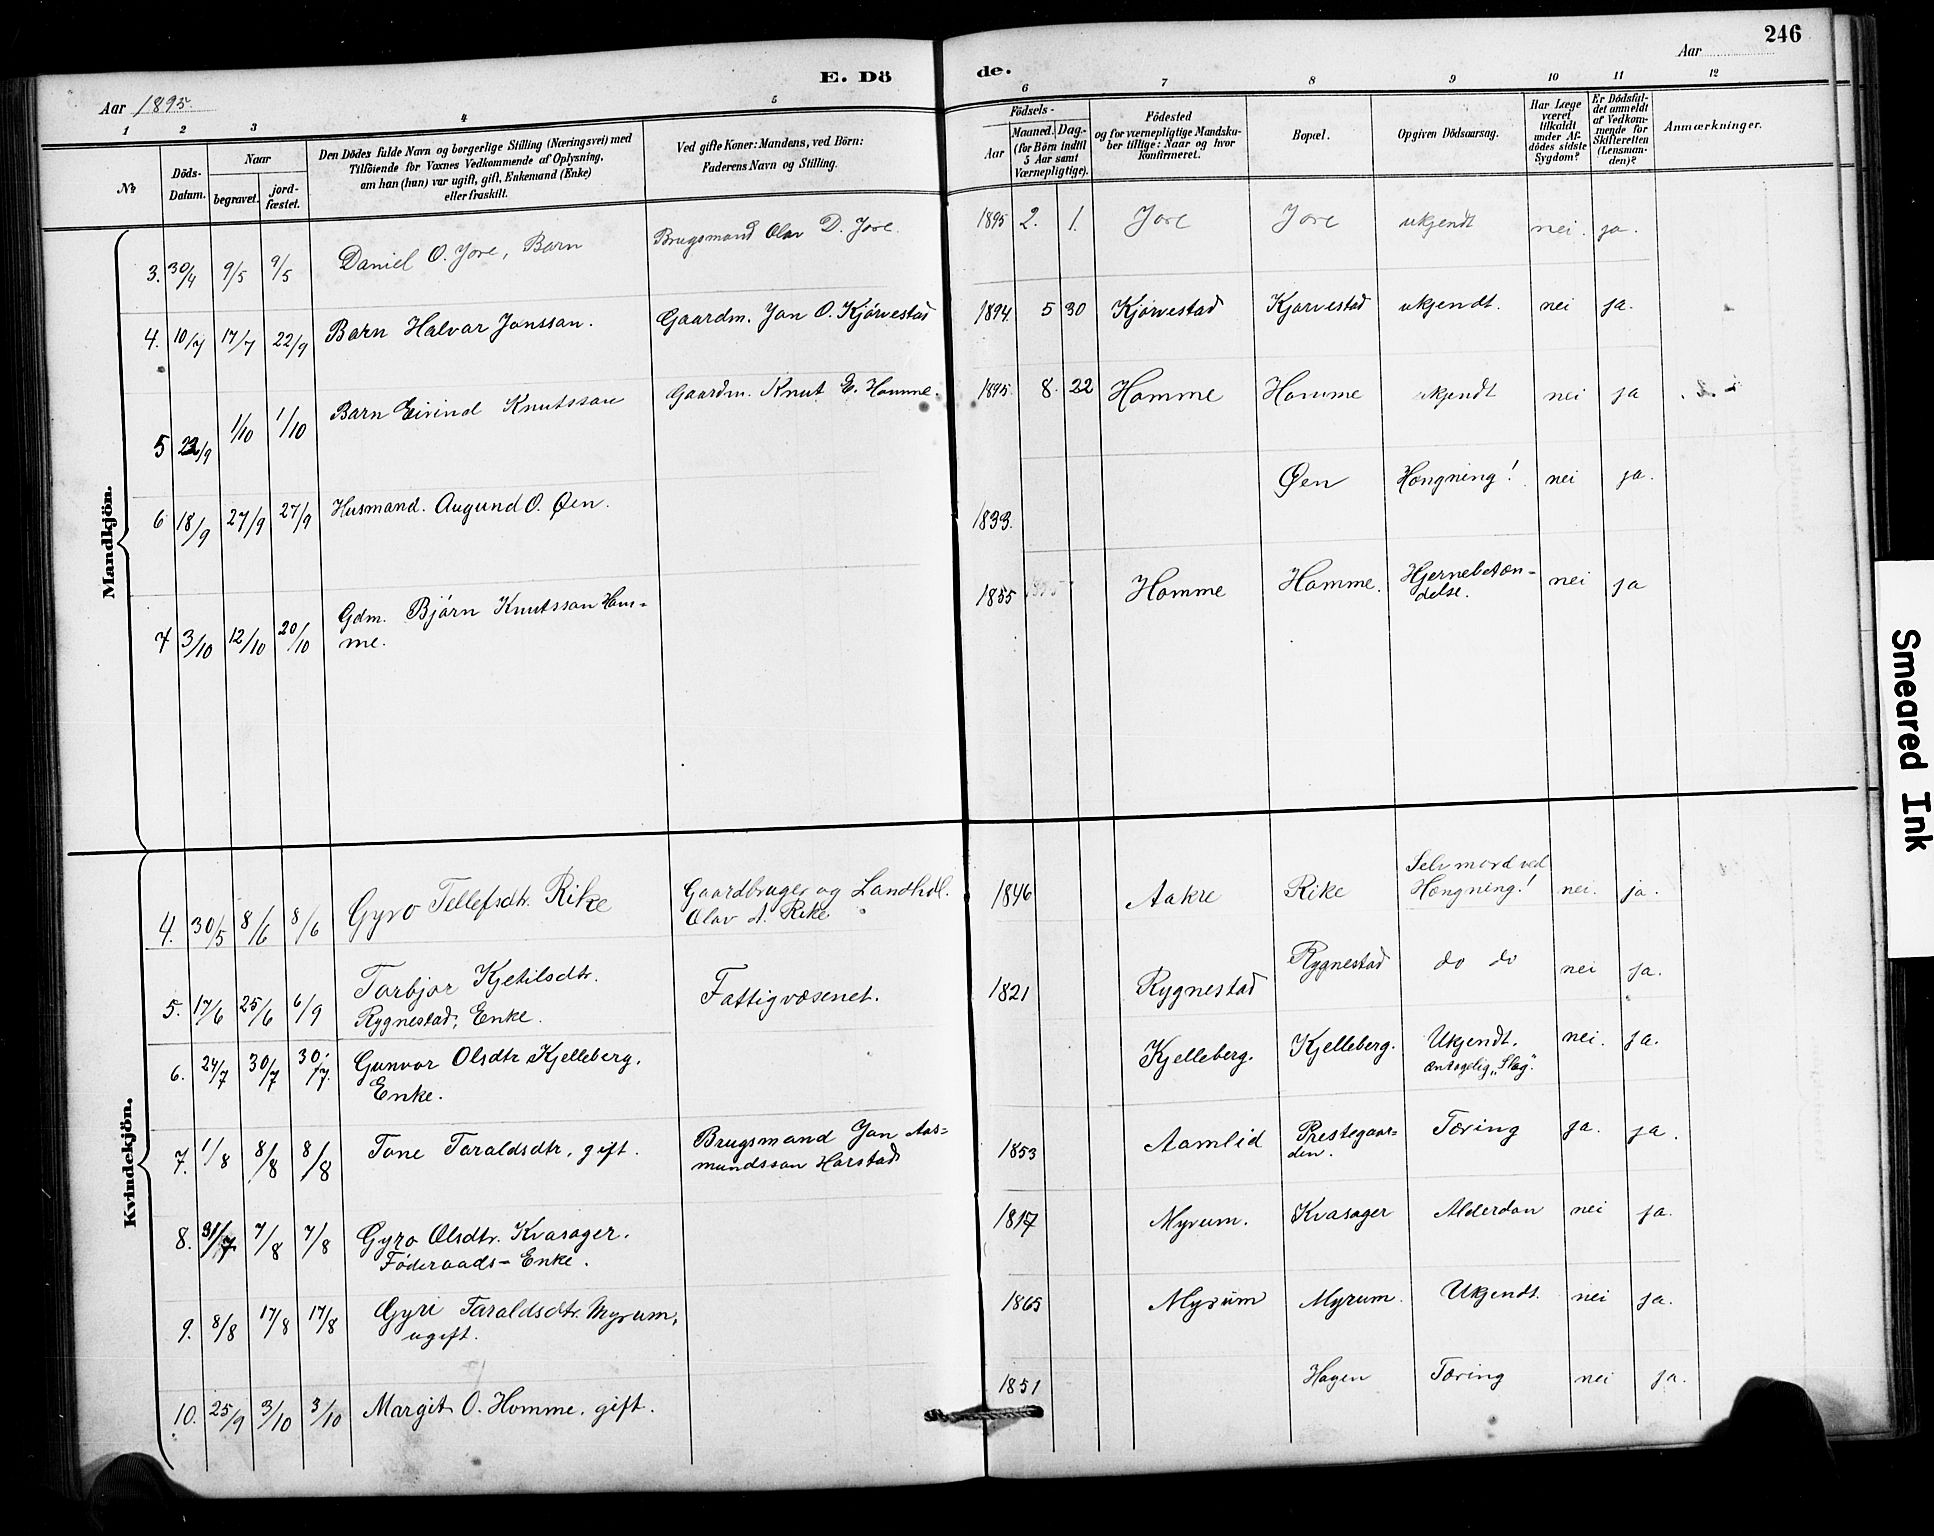 246
E. Dö de.
Aar 1895.
Aar
1 2 3 4 5 6 7 8 9 10 11 12
No
Döds-
Datum.
Naar
begravet.
jord-
fæstet.
Den Dödes fulde Navn og borgerlige Stilling (Næringsvei) med
Tilföiende for Voxnes Vedkommende af Oplysning,
om han (hun) var ugift, gift, Enkemand (Enke)
eller fraskilt.
Ved gifte Koner: Mandens, ved Börn:
Faderens Navn og Stilling.
Födsels-
Aar
Maaned. Dag.
(for Börn indtil
5 Aar samt
Værnepligtige).
Födested
og for værnepligtige Mandska-
ber tillige: Naar og hvor
konfirmeret.
Bopæl.
Opgiven Dödsaarsag.
Har Læge
været
tilkaldt
under Af-
dödes sidste
Sygdom?
Er Dödsfal-
det anmeldt
af Vedkom-
mende for
Skifteretten
(Lensman-
den)?
Anmærkninger.
Mandkjön.
3. 30/4 9/5 9/5 Daniel O. Jore, Barn Brugsmand Olav D. Jore. 1895 2. 1. Jore Jore ukjendt nei. ja.
4. 10/7 17/7 22/9 Barn Halvar Jonsson. Gaardm. Jon O. Kjörvestad 1894. 5 30 Kjörvestad Kjörvestad ukjendt. nei ja.
5 22/9 1/10 1/10 Barn Eivind Knutsson Gaardm. Knut E. Homme. 1895. 8. 22 Homme Homme ukjendt nei ja
6 18/9 27/9 27/9 Husmand. Augund O. Øen. 1833. Øen Hængning! nei ja.
7 3/10 12/10 20/10 Gdm. Björn Knutsson Hom-
me. 1855 Homme Homme. Hjernebetæn-
delse. nei ja
Kvindekjön.
4. 30/5 8/6 8/6 Gyro Tellefsdtr. Rike Gaardbruger og Landhdl.
Olav A. Rike 1846 Aakre Rike Selvmord ved
Hængning! nei. ja.
5. 17/6 25/6 6/9 Torbjor Kjetilsdtr.
Rygnestad, Enke. Fattigvæsenet. 1821 Rygnestad Rygnestad do do nei ja.
6. 24/7 30/7 30/7. Gunvor Olsdtr Kjelleberg,
Enke. Kjelleberg. Kjelleberg. Ukjendt.
antagelig „Slag". nei. ja.
7. 1/8 8/8 8/8 Tone Taraldsdtr, gift. Brugsmand Jon Aas-
mundsson Harstad 1853 Aamlid Prestegaar-
den. Tæring ja. ja.
8. 31/7 7/8 7/8 Gyro Olsdtr. Kvasager.
Föderaads-Enke. 1817 Myrum. Kvasager Alderdom nei ja.
9. 8/8 17/8 17/8 Gyri Taraldsdtr. Myrum,
ugift. 1865 Myrum Myrum. Ukjendt. nei ja.
10. 25/9 3/10 3/10 Margit O. Homme. gift. 1851 Hagen Tæring nei ja.
Smeared Ink